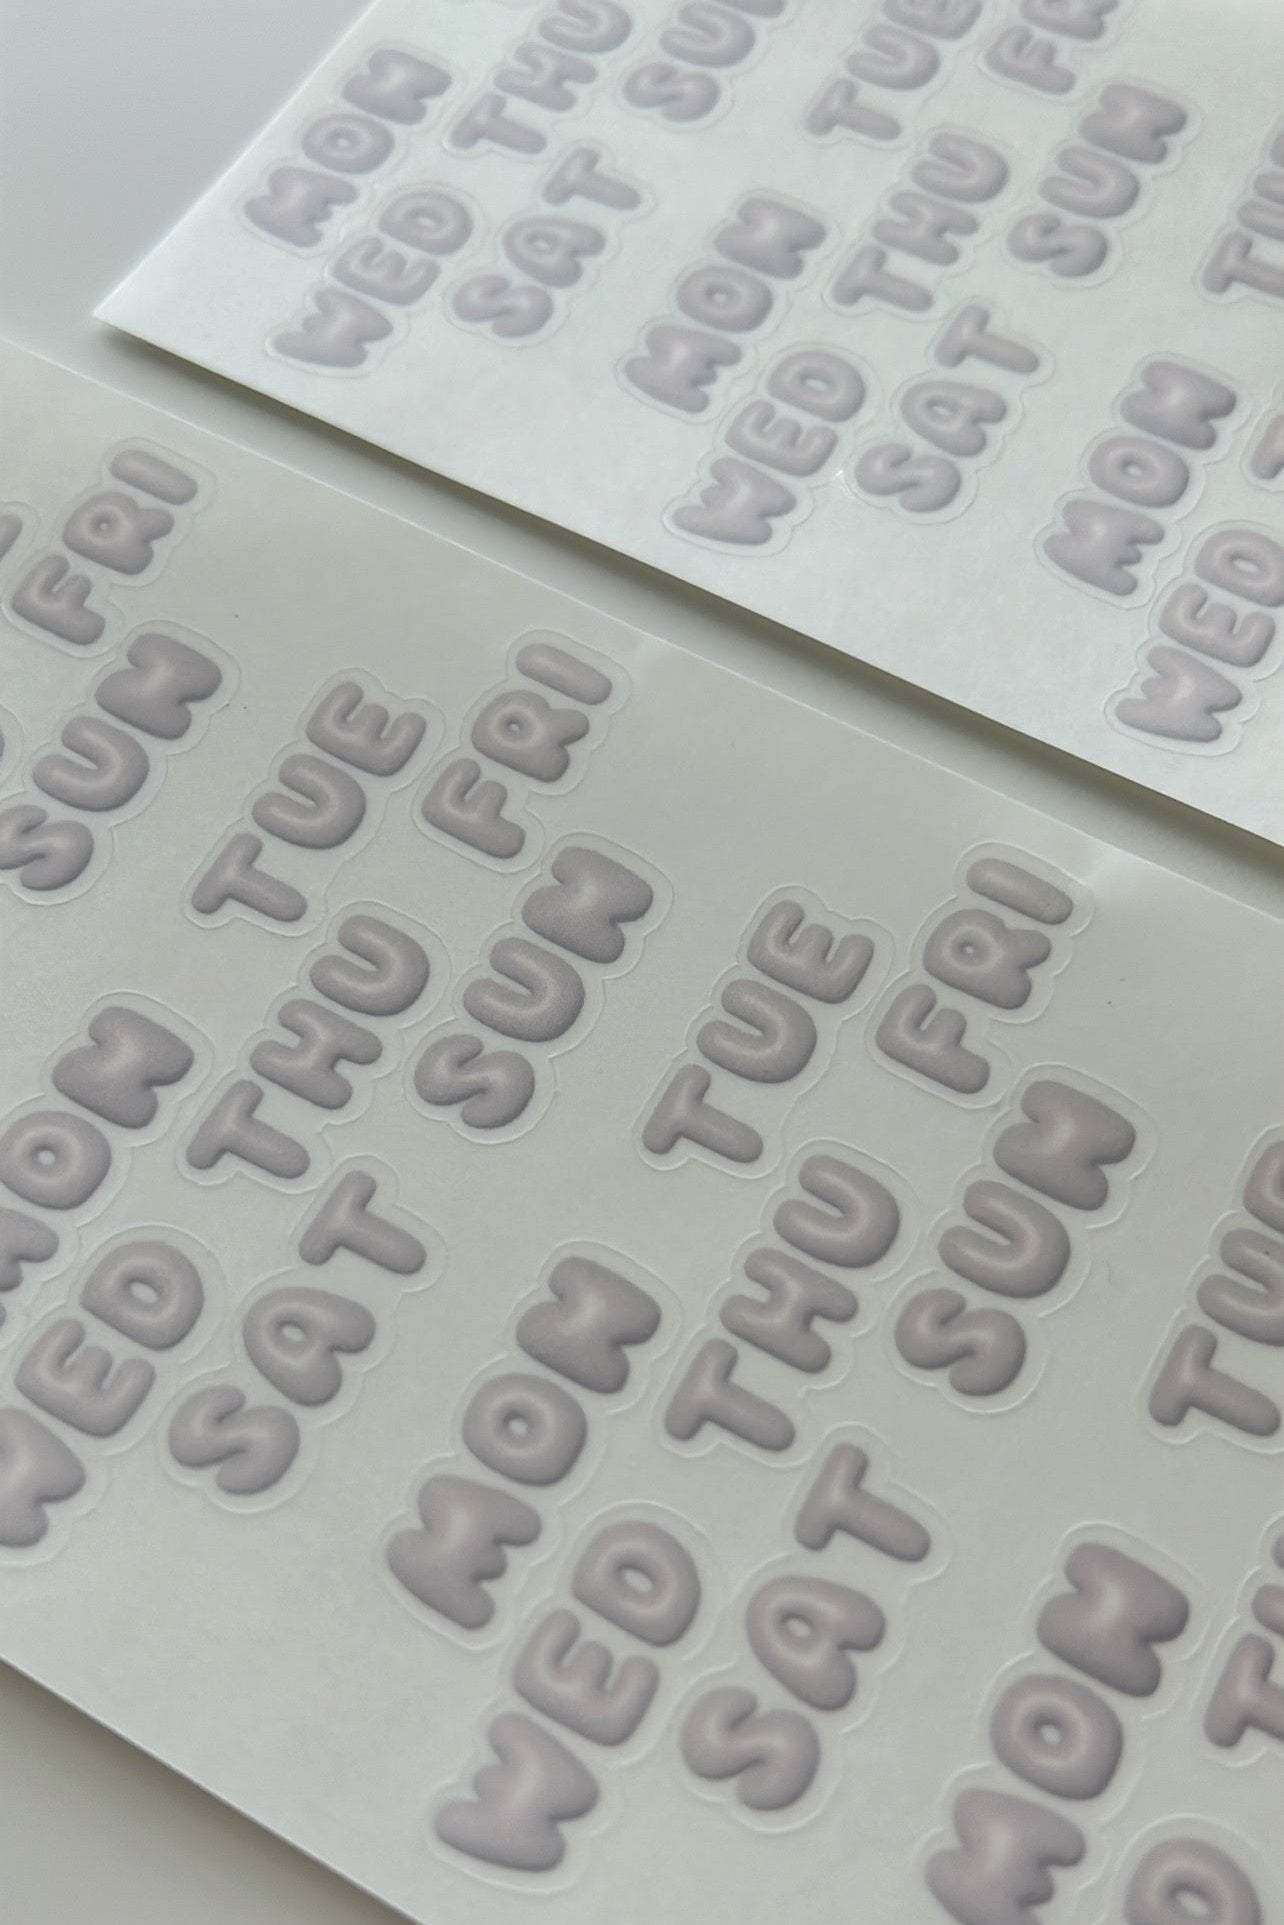 MON
THU
SUN
WED
SAT
TUE
FRI
MON
THU
SUN
WED
SAT
MON
WED
FRI
SUN
TUE
FRI
MON
THU
SUN
WED
SAT
TUE
FRI
MON
THU
SUN
WED
SAT
TUE
MON